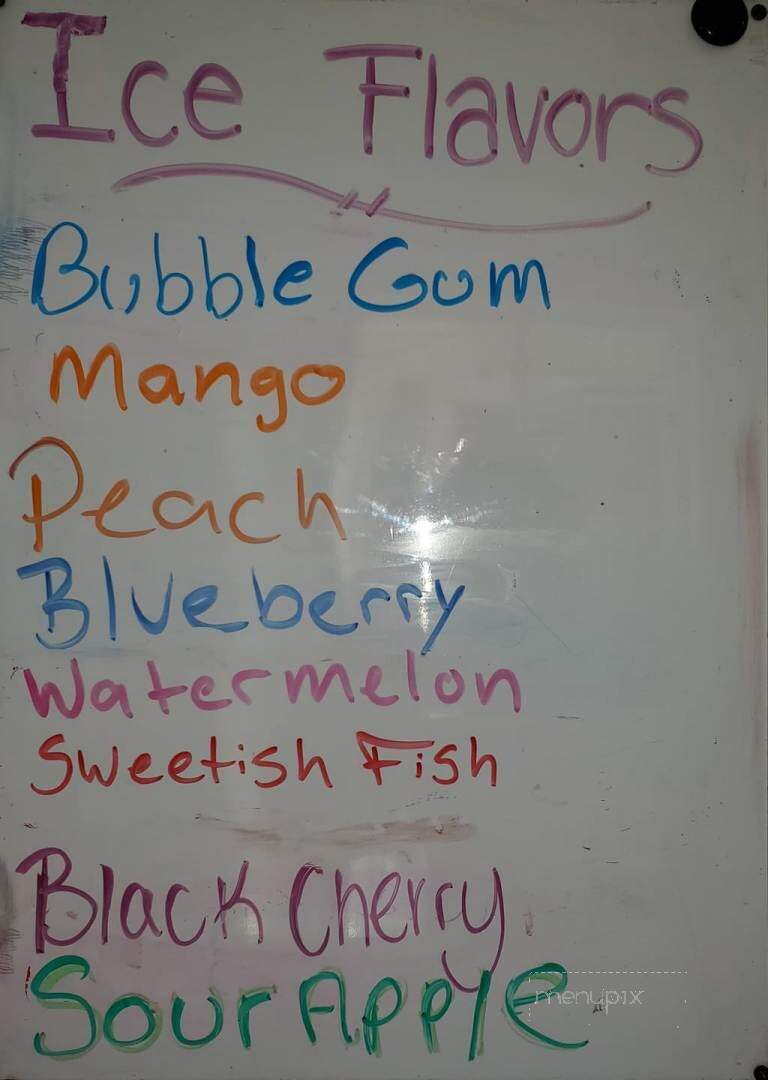 Ice Flavors
Bubble Gum
Mango
Peach
Blueberry
Watermelon
Sweetish Fish
Black Cherry
Sour Apple
menupix